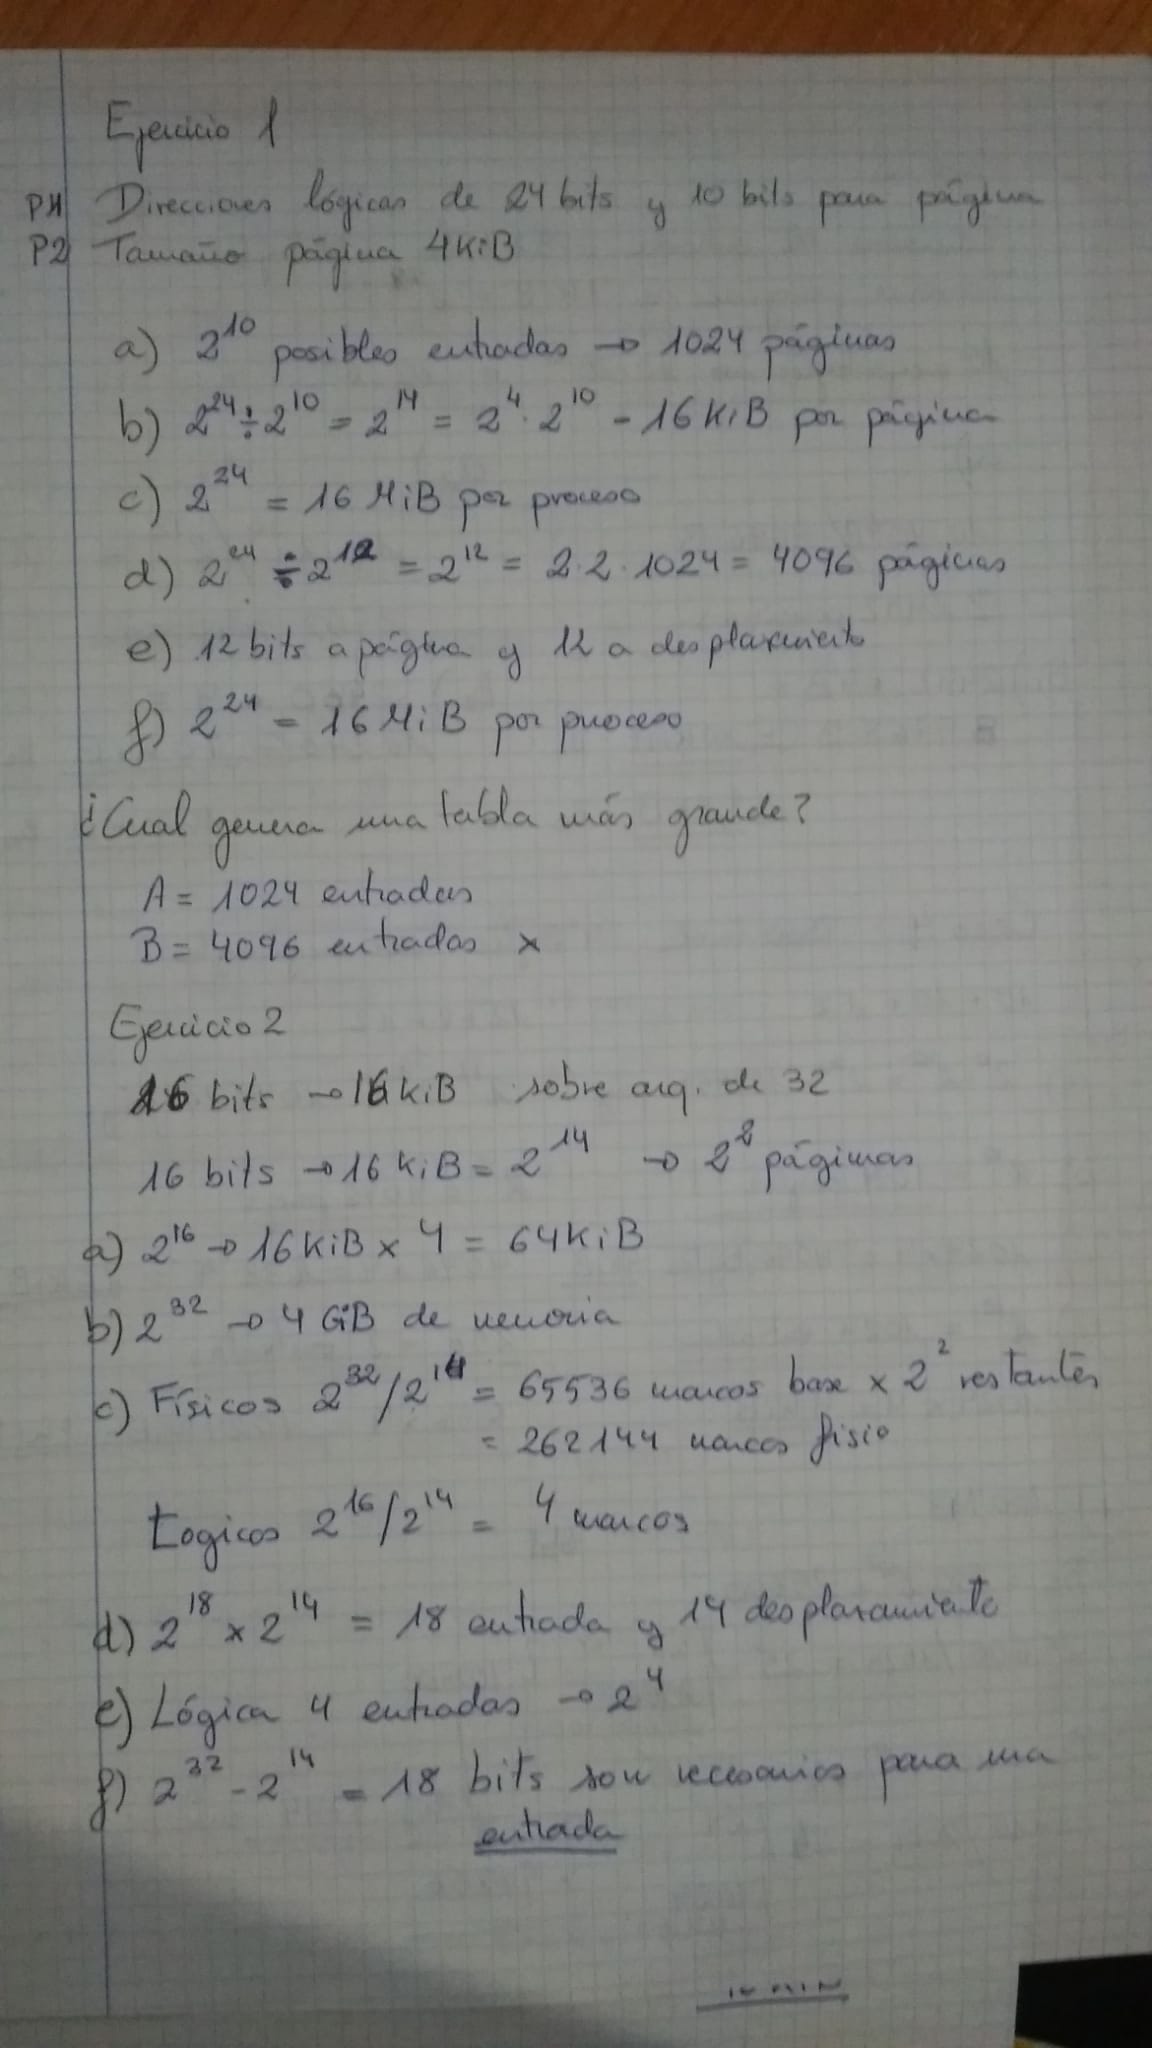 Ejercicio 1
P1 Direcciones lógicas de 24 bits y 10 bits para página
P2 Tamaño página 4KiB
a) 2^10 posibles entradas → 1024 páginas
b) 2^24 ÷ 2^10 = 2^14 = 2^4 · 2^10 - 16KiB por página
c) 2^24 = 16 MiB por proceso
d) 2^24 ÷ 2^12 = 2^12 = 2·2·1024 = 4096 páginas
e) 12 bits a página y 12 a desplazamiento
f) 2^24 = 16 MiB por proceso
¿Cual genera una tabla más grande?
A = 1024 entradas
B = 4096 entradas x
Ejercicio 2
16 bits → 16KiB sobre arq. de 32
16 bits → 16KiB = 2^14 → 2^2 páginas
a) 2^16 → 16KiB x 4 = 64KiB
b) 2^32 → 4 GiB de memoria
c) Físicos 2^32/2^14 = 65536 marcos base x 2^2 restantes
= 262144 marcos fisio
Logicos 2^16/2^14 = 4 marcos
d) 2^18 x 2^14 = 18 entrada y 14 desplazamiento
e) Lógica 4 entradas → 2^4
f) 2^32 - 2^14 = 18 bits son necesarios para una
entrada